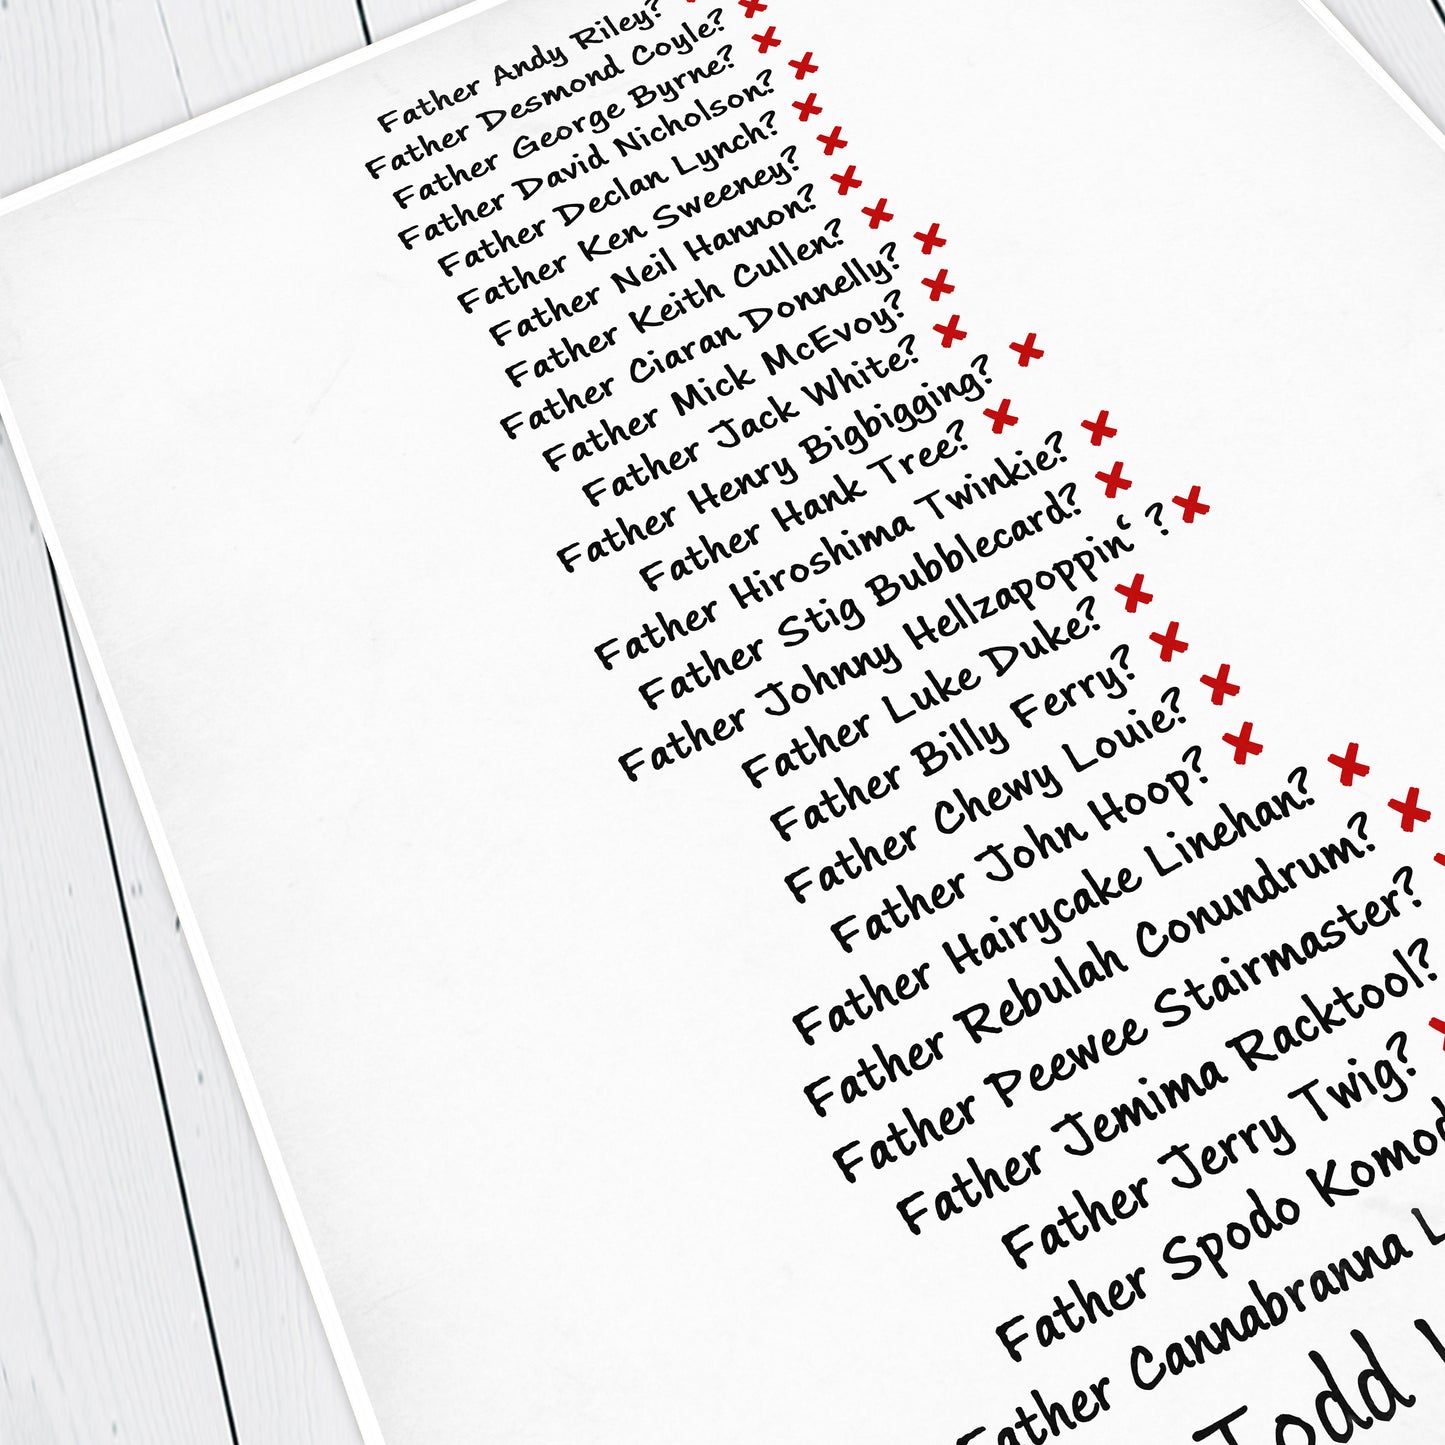 Father Andy Riley?
Father Desmond Coyle?
Father George Byrne?
Father David Nicholson?
Father Declan Lynch?
Father Ken Sweeney?
Father Neil Hannon?
Father Keith Cullen?
Father Ciaran Donnelly?
Father Mick McEvoy?
Father Jack White?
Father Henry Bigbigging?
Father Hank Tree?
Father Hiroshima Twinkie?
Father Stig Bubblecard?
Father Johnny Hellzapoppin‘ ?
Father Luke Duke?
Father Billy Ferry?
Father Chewy Louie?
Father John Hoop?
Father Hairycake Linehan?
Father Rebulah Conundrum?
Father Peewee Stairmaster?
Father Jemima Racktool?
Father Jerry Twig?
Father Spodo Komod
Father Cannabranna L
Todd